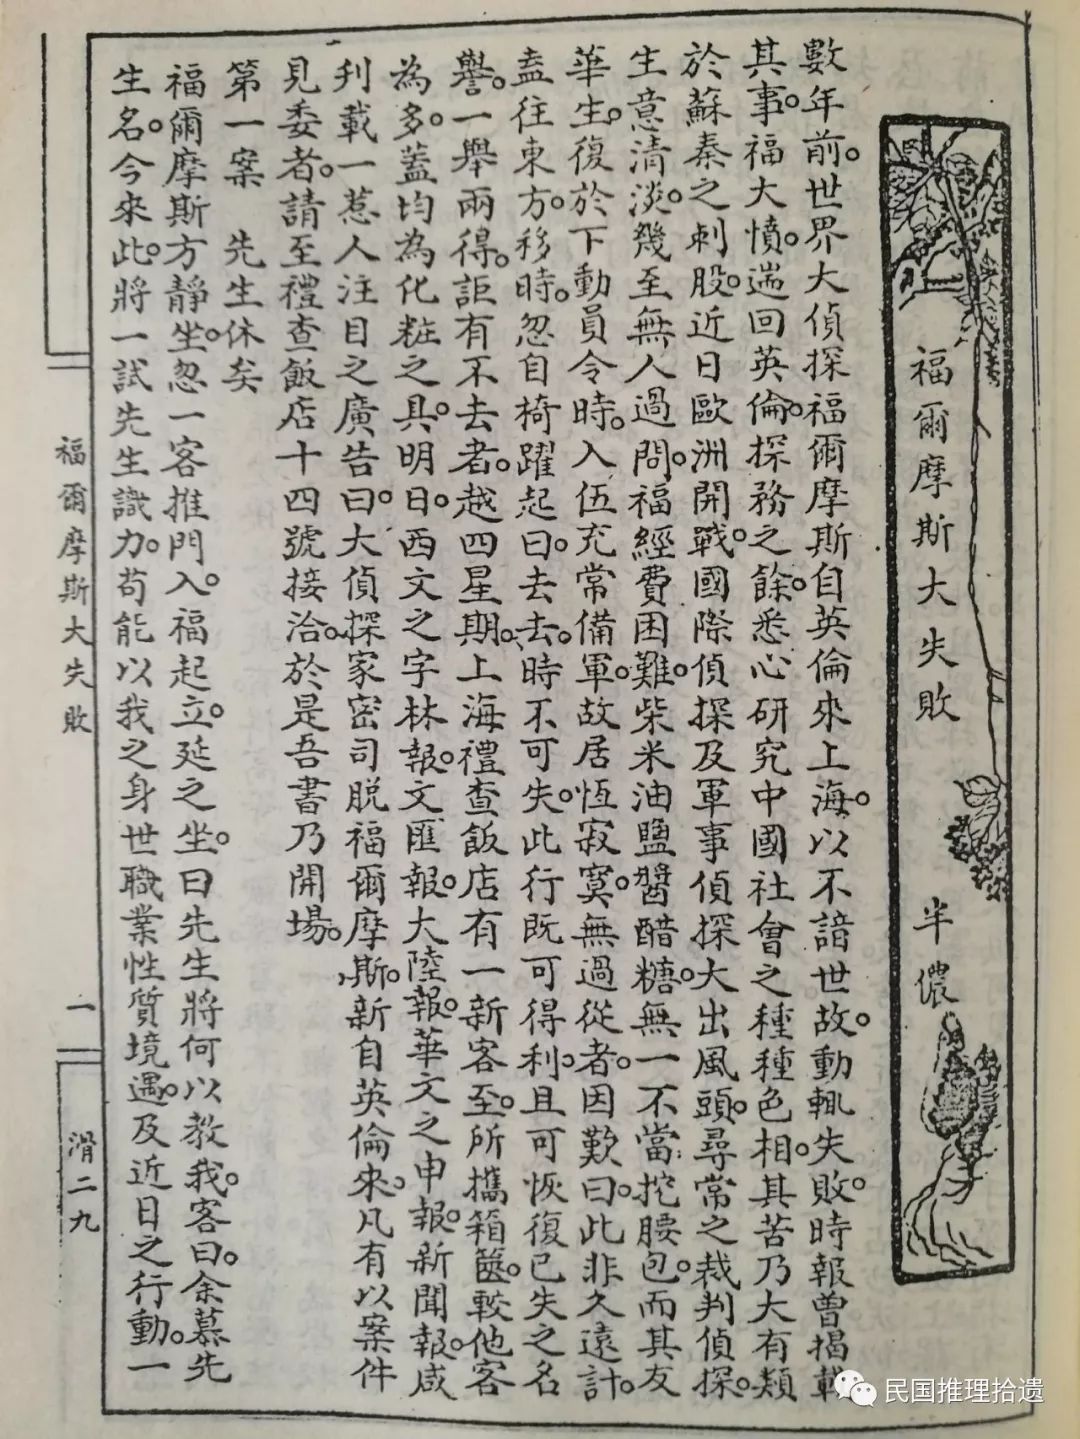 福爾摩斯大失敗 半儂
數年前。世界大偵探福爾摩斯自英倫來上海。以不諳世故。動輒失敗。時報曾揭載
其事。福大憤。遄回英倫。探務之餘。悉心研究中國社會之種種色相。其苦乃大有類
於蘇秦之刺股。近日歐洲開戰。國際偵探及軍事偵探大出風頭。尋常之裁判偵探。
生意清淡。幾至無人過問。福經費困難。柴米油鹽醬醋糖。無一不當挖腰包。而其友
華生。復於下動員令時。入伍充常備軍。故居恆寂寞。無過從者。因歎曰。此非久遠計。
盍往東方。移時。忽自椅躍起曰。去去。時不可失。此行既可得利。且可恢復已失之名
譽。一舉兩得。詎有不去者。越四星期。上海禮查飯店有一新客至。所攜箱篋。較他客
為多。蓋均為化粧之具。明日。西文之字林報。文匯報。大陸報。華文之申報。新聞報。咸
刋載一惹人注目之廣告曰。大偵探家密司脱福爾摩斯。新自英倫來。凡有以案件
見委者。請至禮查飯店十四號接洽。於是吾書乃開場。
第一案 先生休矣
福爾摩斯方靜坐。忽一客推門入。福起立。延之坐。曰先生將何以教我。客曰。余慕先
生名。今來此。將一試先生識力。苟能以我之身世職業性質境遇。及近日之行動。一
福爾摩斯大失敗
一
滑二九
民国推理拾遗